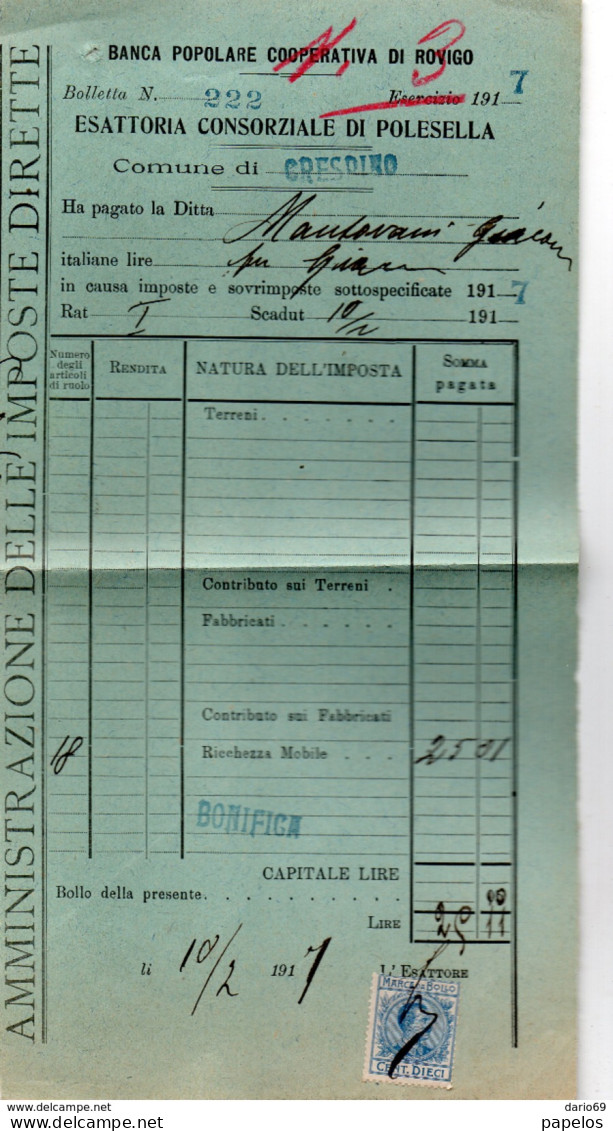 AMMINISTRAZIONE DELLE IMPOSTE DIRETTE
N. 3
BANCA POPOLARE COOPERATIVA DI ROVIGO
Bolletta N. 222 Esercizio 1917
ESATTORIA CONSORZIALE DI POLESELLA
Comune di CRESPINO
Ha pagato la Ditta Mantovani
italiane lire
in causa imposte e sovrimposte sottospecificate 1917
Rat I Scadut 10/2 191
Numero degli articoli di ruolo RENDITA NATURA DELL'IMPOSTA SOMMA pagata
Terreni
Contributo sui Terreni
Fabbricati
Contributo sui Fabbricati
18 Ricchezza Mobile 25 01
BONIFICA
CAPITALE LIRE
Bollo della presente 10
LIRE 25 11
li 10/2 1917 L'ESATTORE
MARCA DA BOLLO
CENT. DIECI
dario69
www.delcampe.net papelos